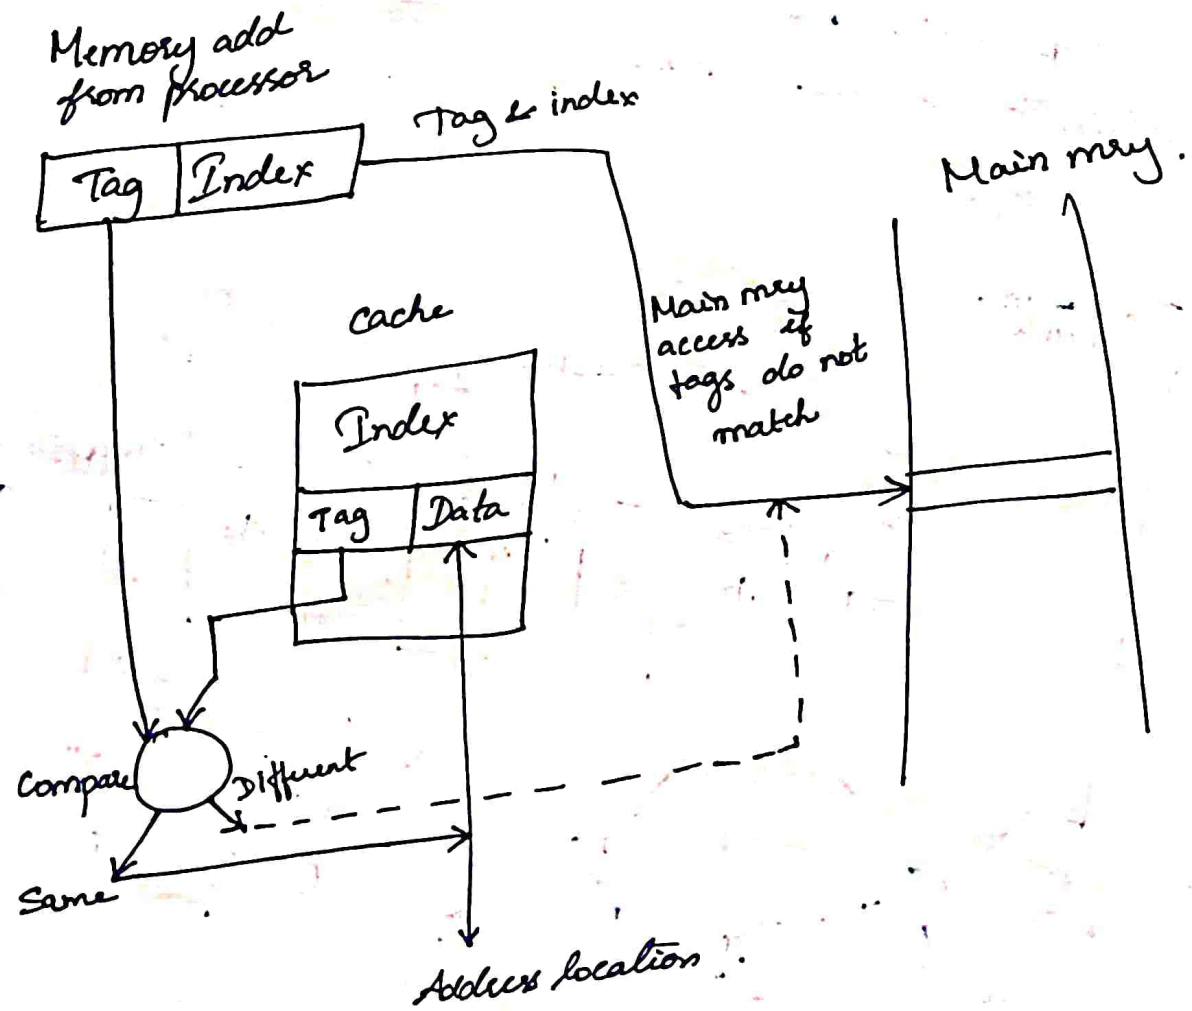 Memory add
from processor
Tag & index
Tag Index
Main mry.
cache
Main mry
access if
tags do not
match
Index
Tag Data
Compare
Different
Same
Address location